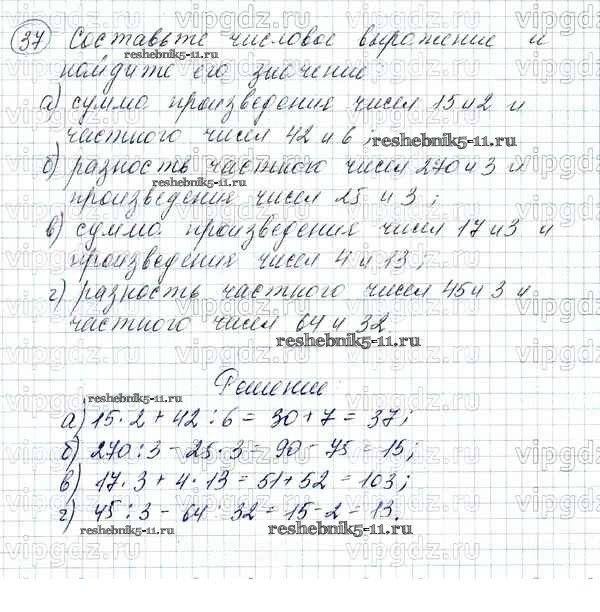 37 Составьте числовое выражение и
reshebnik5-11.ru
найдите его значение:
а) сумма произведения чисел 15 и 2 и
частного чисел 42 и 6;
reshebnik5-11.ru
б) разность частного чисел 270 и 3 и
reshebnik5-11.ru
произведения чисел 25 и 3;
в) сумма произведения чисел 17 и 3 и
произведения чисел 4 и 13;
г) разность частного чисел 45 и 3 и
частного чисел 64 и 32.
reshebnik5-11.ru
Решение:
reshebnik5-11.ru
а) 15 · 2 + 42 : 6 = 30 + 7 = 37;
б) 270 : 3 - 25 · 3 = 90 - 75 = 15;
в) 17 · 3 + 4 · 13 = 51 + 52 = 103;
г) 45 : 3 - 64 : 32 = 15 - 2 = 13.
reshebnik5-11.ru
reshebnik5-11.ru
vipgdz.ru